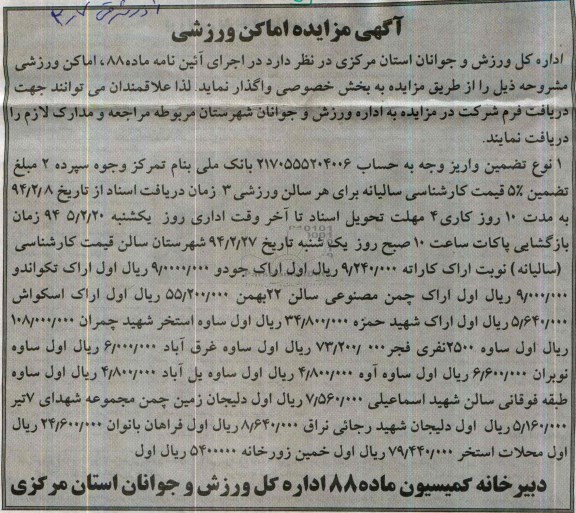 آگهی مزایده اماکن ورزشی
اداره کل ورزش و جوانان استان مرکزی در نظر دارد در اجرای آئین نامه ماده۸۸، اماکن ورزشی
مشروحه ذیل را از طریق مزایده به بخش خصوصی واگذار نماید. لذا علاقمندان می توانند جهت
دریافت فرم شرکت در مزایده به اداره ورزش و جوانان شهرستان مربوطه مراجعه و مدارک لازم را
دریافت نمایند.
۱ نوع تضمین واریز وجه به حساب ۲۱۷۰۵۵۵۲۰۴۰۰۶ بانک ملی بنام تمرکز وجوه سپرده ۲ مبلغ
تضمین ۵٪ قیمت کارشناسی سالیانه برای هر سالن ورزشی ۳ زمان دریافت اسناد از تاریخ ۹۴/۲/۸
به مدت ۱۰ روز کاری ۴ مهلت تحویل اسناد تا آخر وقت اداری روز یکشنبه ۹۴/۲/۲۰ ۵ زمان
بازگشایی پاکات ساعت ۱۰ صبح روز یکشنبه تاریخ ۹۴/۲/۲۷ شهرستان سالن قیمت کارشناسی
(سالیانه) نوبت اراک کاراته ۹/۲۴۰/۰۰۰ ریال اول اراک جودو ۹/۰۰۰۰/۰۰۰ ریال اول اراک تکواندو
۹/۰۰۰/۰۰۰ ریال اول اراک چمن مصنوعی سالن ۲۲بهمن ۵۵/۲۰۰/۰۰۰ ریال اول اراک اسکواش
۵/۶۴۰/۰۰۰ ریال اول اراک شهید حمزه ۳۴/۸۰۰/۰۰۰ ریال اول ساوه استخر شهید چمران ۱۰۸/۰۰۰/۰۰۰
ریال اول ساوه ۲۵۰۰نفری فجر ۷۳/۲۰۰/۰۰۰ ریال اول ساوه غرق آباد ۶/۰۰۰/۰۰۰ ریال اول ساوه
نوبران ۶/۶۰۰/۰۰۰ ریال اول ساوه آوه ۴/۸۰۰/۰۰۰ ریال اول ساوه یل آباد ۴/۸۰۰/۰۰۰ ریال اول ساوه
طبقه فوقانی سالن شهید اسماعیلی ۷/۵۶۰/۰۰۰ ریال اول دلیجان زمین چمن مجموعه شهدای ۷تیر
۵/۱۶۰/۰۰۰ ریال اول دلیجان شهید رجائی نراق ۸/۶۴۰/۰۰۰ ریال اول فراهان بانوان ۲۴/۶۰۰/۰۰۰ ریال
اول محلات استخر ۷۹/۴۴۰/۰۰۰ ریال اول خمین زورخانه ۵۴۰۰۰۰۰ ریال اول
دبیرخانه کمیسیون ماده۸۸ اداره کل ورزش و جوانان استان مرکزی